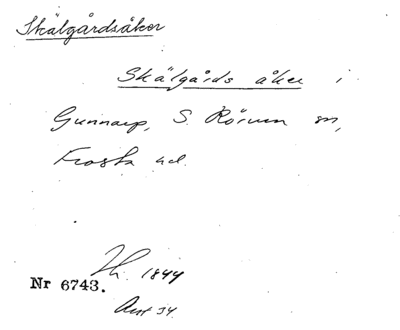 Skälgårdsåker
Skälgårds åker i
Gunnarp, S. Rörum sn,
Frosta hd.
Th. 1844
Nr 6743.
Avst 34.